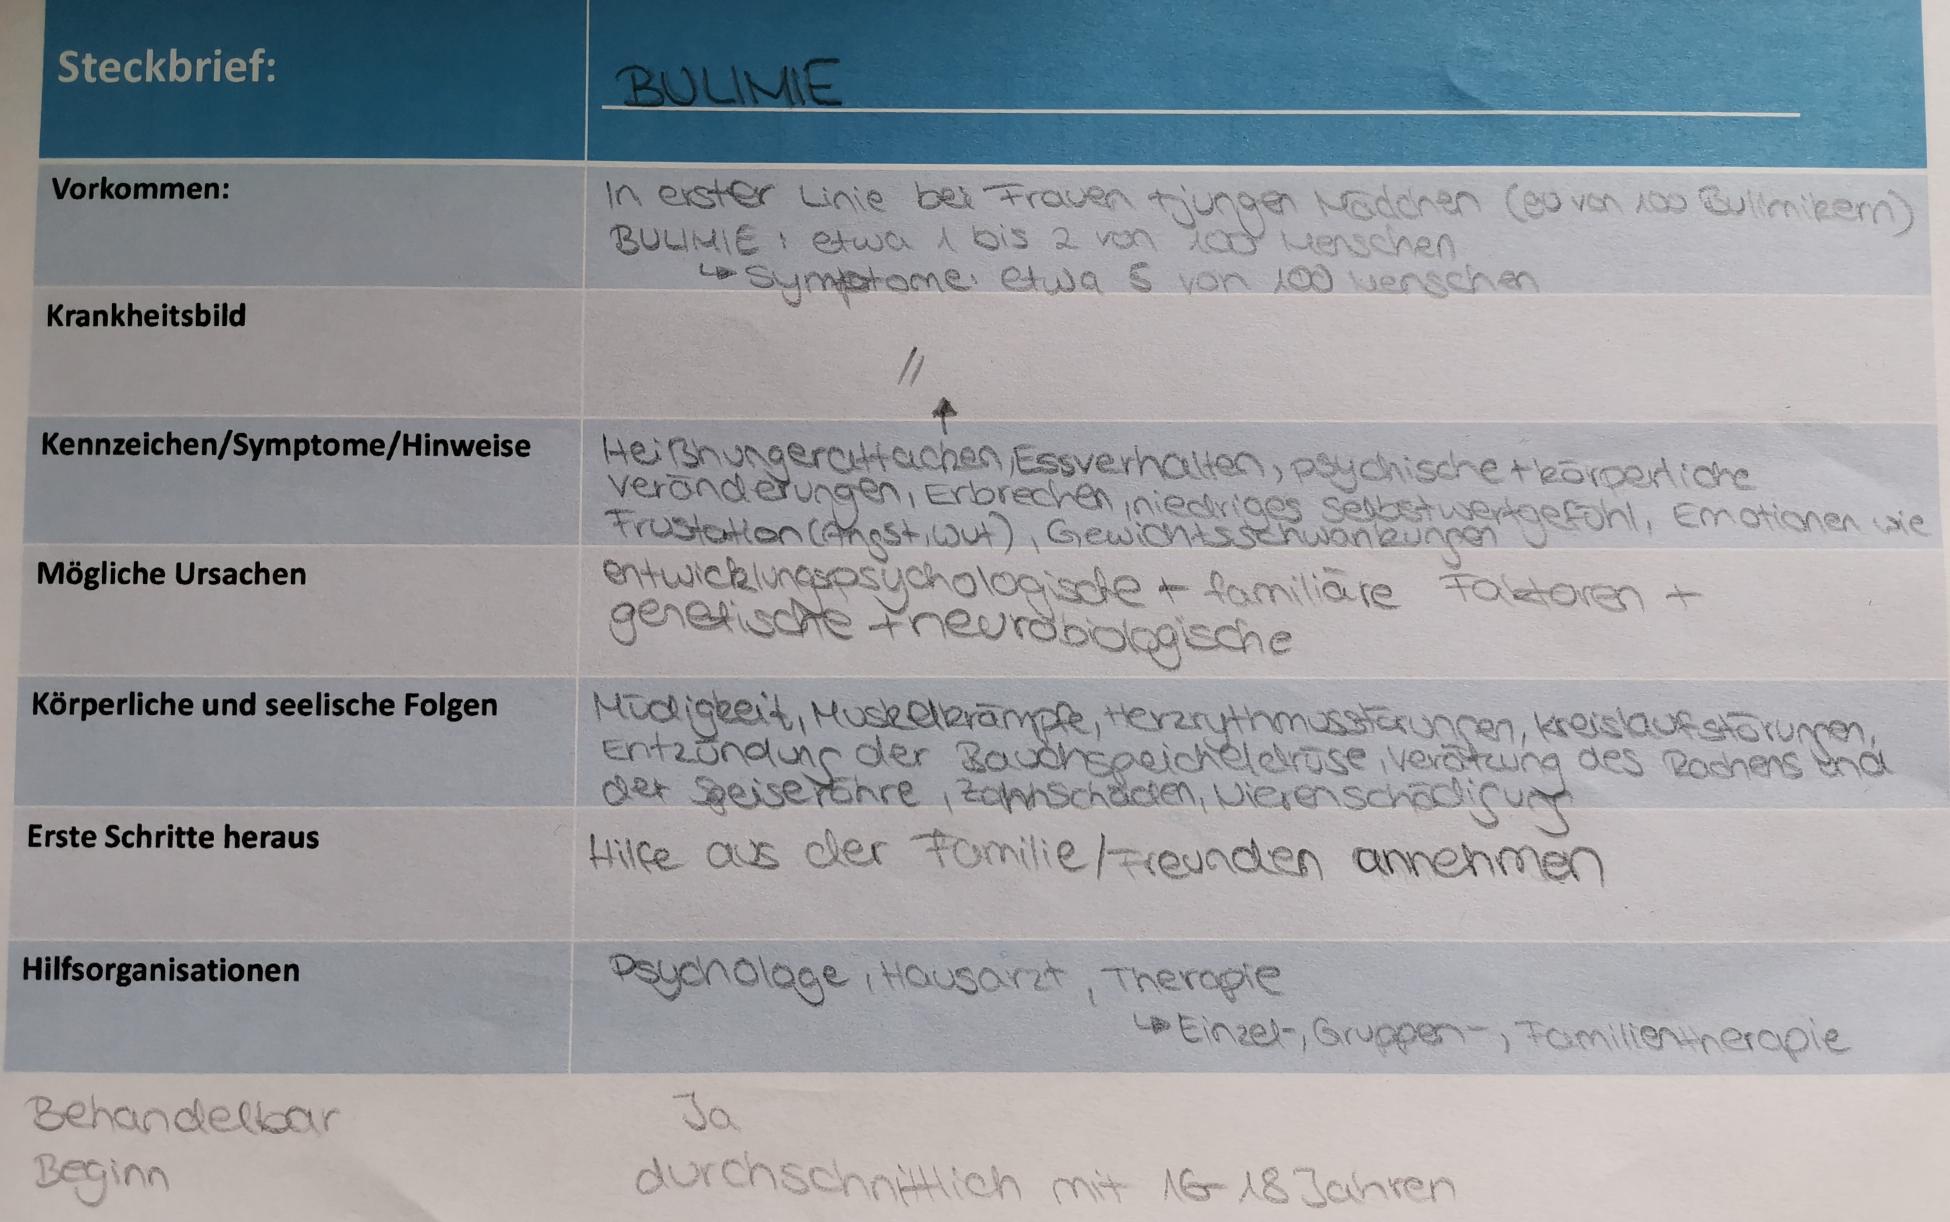 Steckbrief: BULIMIE
Vorkommen: In erster Linie bei Frauen + jungen Mädchen (90 von 100 Bulimikern)
BULIMIE: etwa 1 bis 2 von 100 Menschen
↳ Symptome: etwa 5 von 100 Menschen
Krankheitsbild //
↑
Kennzeichen/Symptome/Hinweise Heißhungerattacken, Essverhalten, psychische + körperliche
Veränderungen, Erbrechen, niedriges Selbstwertgefühl, Emotionen wie
Frustation (Angst, Wut), Gewichtsschwankungen
Mögliche Ursachen entwicklungspsychologische + familiäre Faktoren +
genetische + neurobiologische
Körperliche und seelische Folgen Müdigkeit, Muskelkrämpfe, Herzrythmusstörungen, Kreislaufstörungen,
Entzündung der Bauchspeicheldrüse, Verätzung des Rachens und
der Speiseröhre, Zahnschäden, Nierenschädigung
Erste Schritte heraus Hilfe aus der Familie/Freunden annehmen
Hilfsorganisationen Psychologe, Hausarzt, Therapie
↳ Einzel-, Gruppen-, Familientherapie
Behandelbar Ja
Beginn durchschnittlich mit 16-18 Jahren